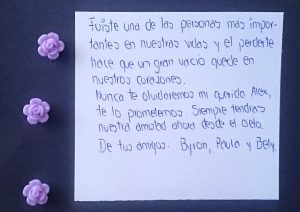 Fuiste una de las personas mas impor-
tantes en nuestras vidas y el perderte
hace que un gran vacio quede en
nuestros corazones.
Nunca te olvidaremos mi querido Alex,
te lo prometemos. Siempre tendras
nuestra amistad ahora desde el cielo.
De tus amigos: Byron, Paula y Bety.